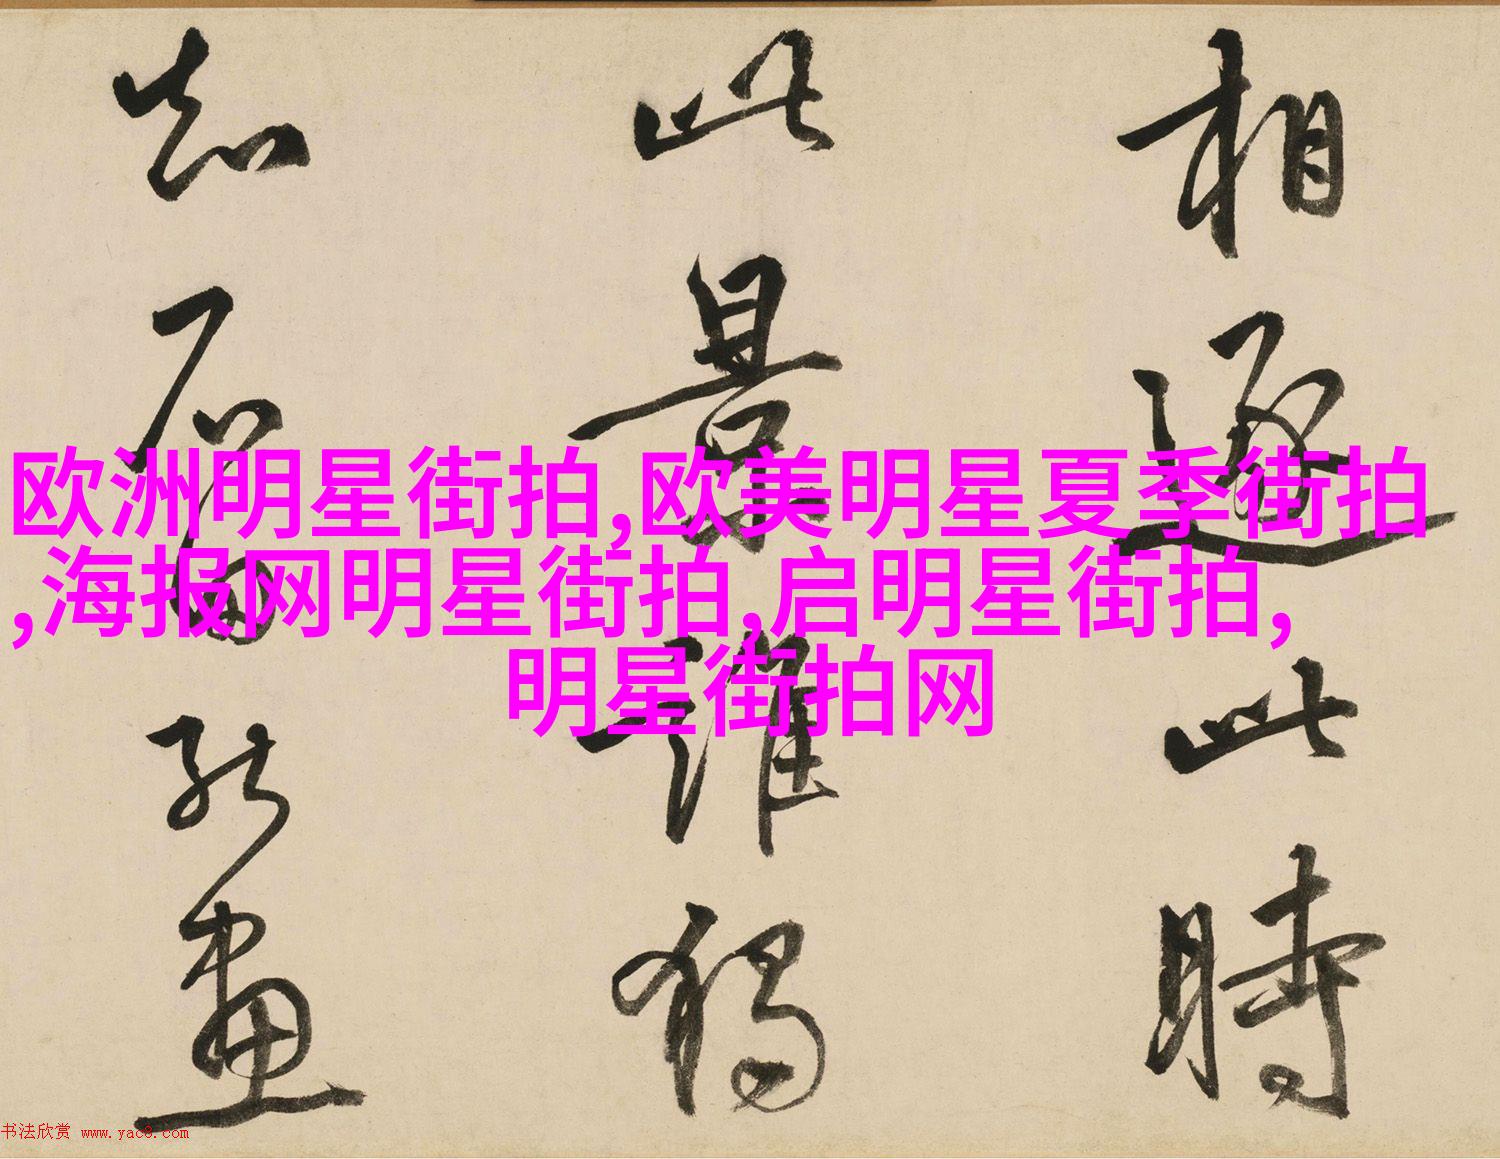 相逐此時
此景誰獨
知石田能畫
欧洲明星街拍,欧美明星夏季街拍
,海报网明星街拍,启明星街拍,
明星街拍网
书法欣赏 www.yac8.com